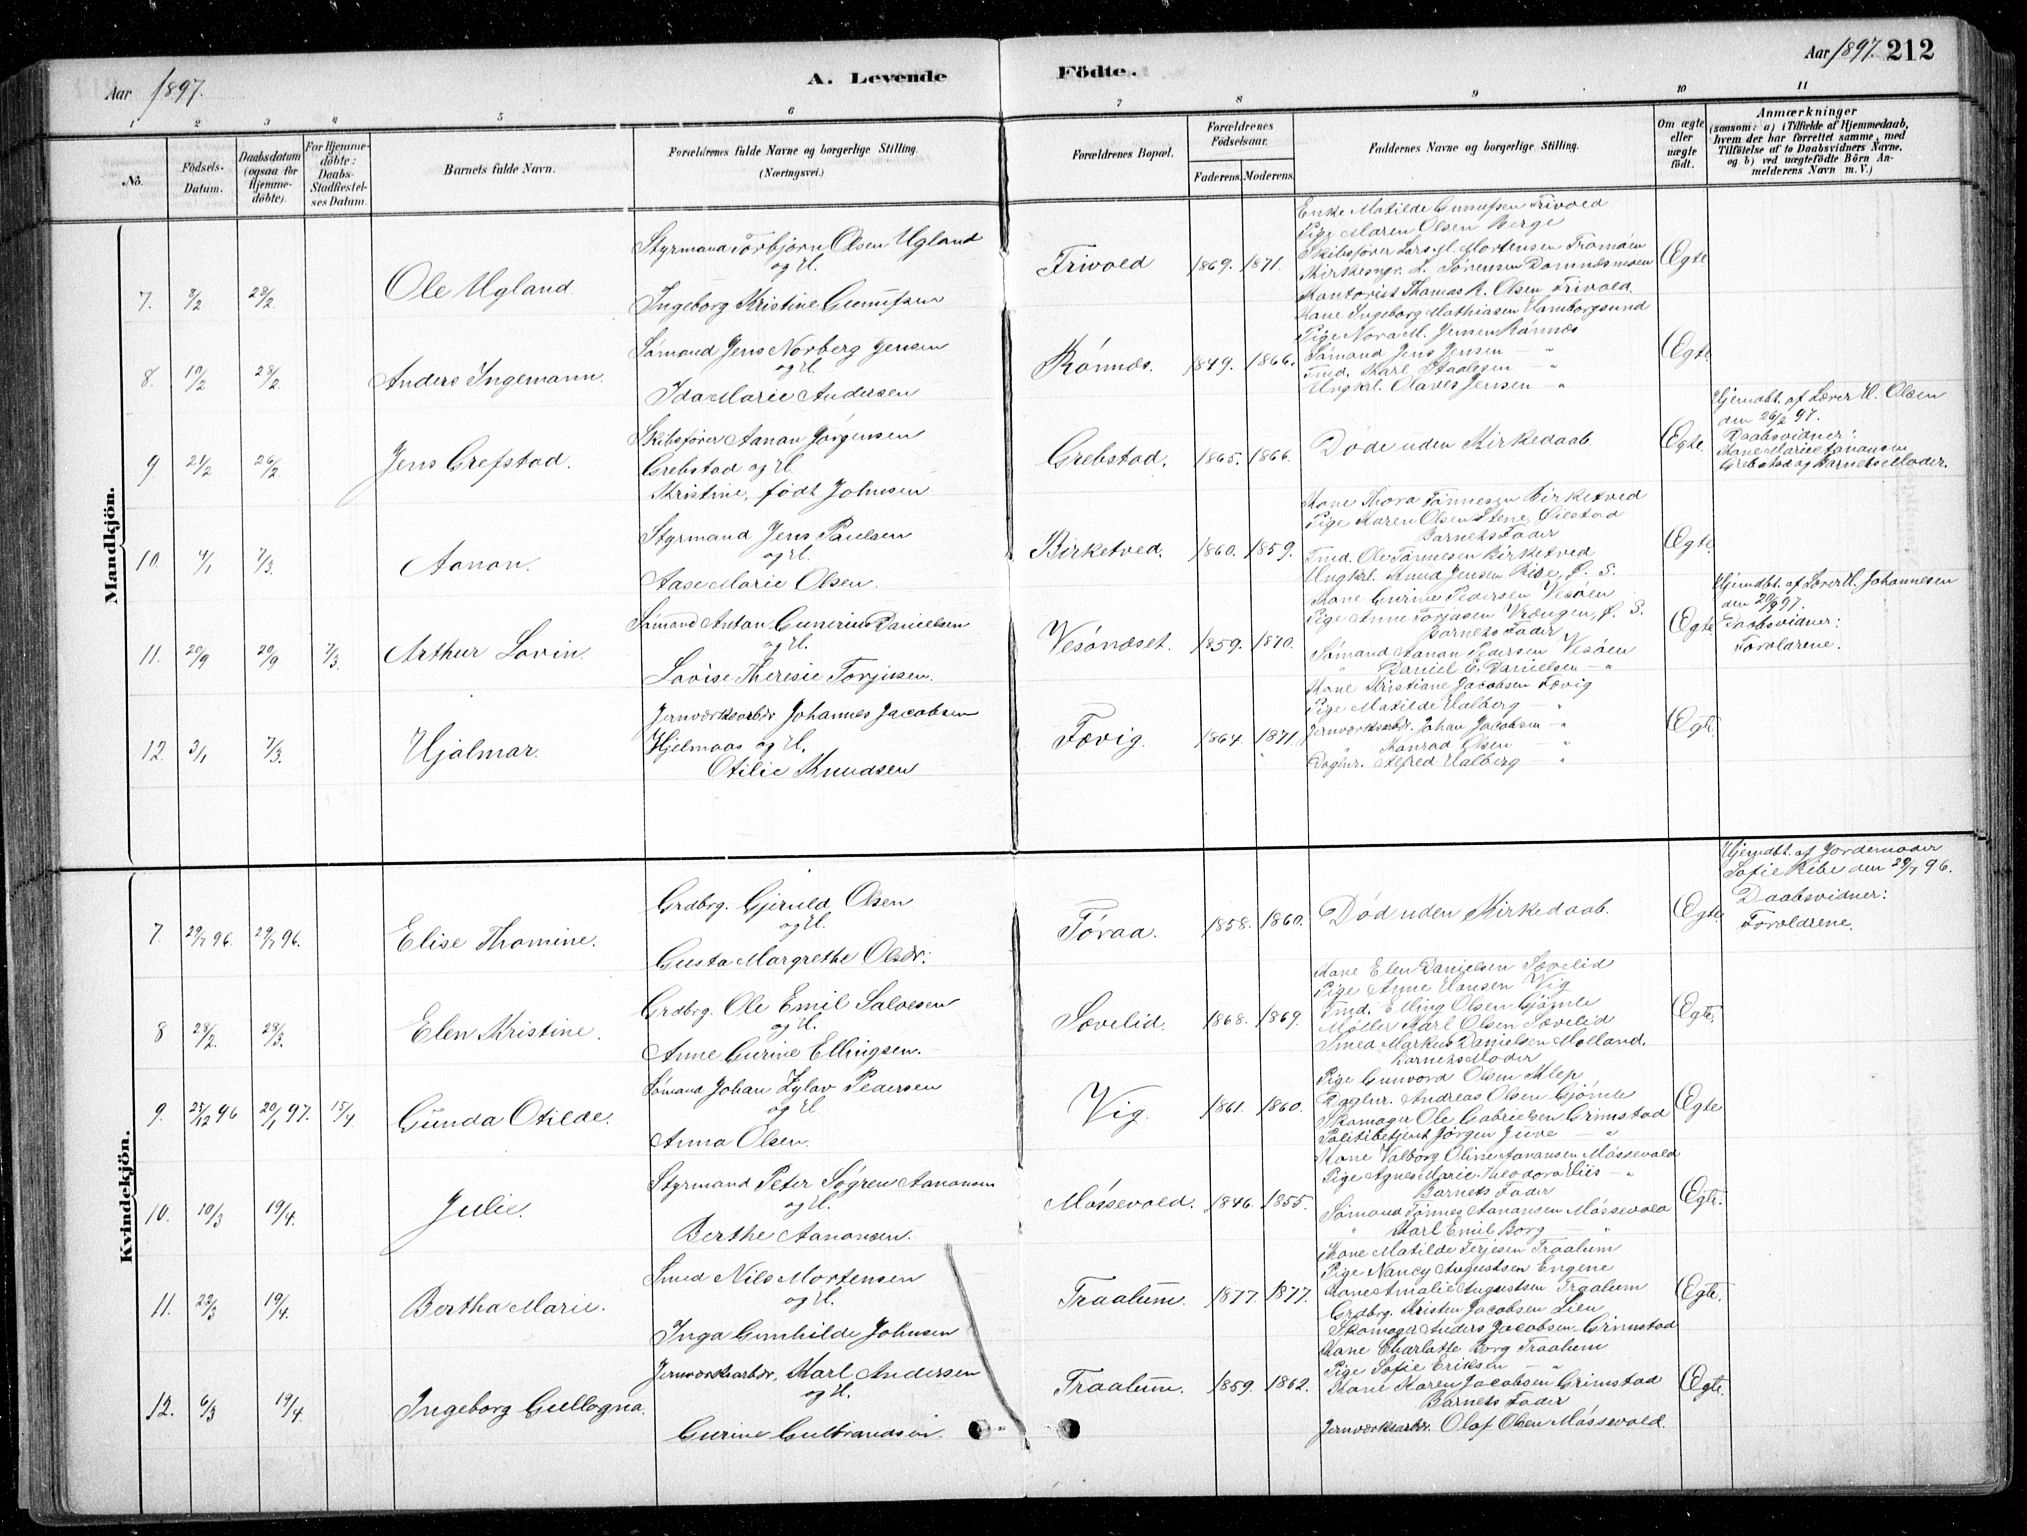 Aar 1897.
A. Levende Födte.
Aar 1897. 212
1 2 3 4 5 6 7 8 9 10 11
No.
Födsels-Datum.
Daabsdatum (ogsaa for Hjemme-döbte).
For Hjemme-döbte: Daabs-Stadfæstel-ses Datum.
Barnets fulde Navn.
Forældrenes fulde Navne og borgerlige Stilling. (Næringsvei.)
Forældrenes Bopæl.
Forældrenes Födselsaar.
Faderens. Moderens.
Faddernes Navne og borgerlige Stilling.
Om ægte eller uægte födt.
Anmærkninger
(saasom: a) i Tilfælde af Hjemmedaab, hvem der har forrettet samme, med Tilföielse af to Daabsvidners Navne, og b) ved uægtefödte Börn Anmelderens Navn m. V.)
Mandkjön.
7. 8/2 28/2 Ole Ugland
Styrmand Torbjörn Olsen Ugland
og H.
Ingeborg Kristine Gunufsen
Frivold 1869. 1871.
Enke Matilde Gunufsen Frivold
Pige Maren Olsen Berge
Skibsfører Lars M. Mortensen Tromöen
Kirkesngr. L. Sørensen Dömmesmoen
Kontorist Thomas R. Olsen Frivold.
Ægte
8. 10/2 28/2 Anders Ingemann.
Sömand Jens Norberg Jensen
og H
Ida Marie Andersen
Rönnes. 1849. 1866.
Kone Ingeborg Mathiasen Hamborgsund
Pige Nora M. Jensen Rönnes
Sömand Jens Jensen — "
Tmd. Karl Staalesen — "
Ungkrl. Olaves Jensen — "
Ægte
9 21/2 26/2 Jens Grefstad.
Skibsfører Aanon Jörgensen
Grebstad og H.
Kristine, födt Johnsen
Grebstad. 1865. 1866.
Døde uden Kirkedaab.
Ægte.
Hjemdbt. af Lærer H. Olsen
den 26/2 97.
Daabsvidner:
Kone Marie Aanonsen
Grebstad og Barnets Moder.
10. 4/1 7/3. Aanon.
Styrmand Jens Paulsen
og H.
Aase Marie Olsen.
Birketved. 1860. 1859.
Kone Thora Tönnesen Birketved
Pige Karen Olsen Stene, Öiestad
Barnets Fader
Tmd. Ole Tönnesen Birketved
Ungkrl. Knud Jensen Rise, Ö. S.
Ægte
11. 20/9 20/9 7/3. Arthur Lovin.
Sömand Anton Gunerius Danielsen
og H.
Lovise Theresie Torjusen.
Vesönæset. 1859. 1870.
Kone Gurine Pedersen Vesöen
Pige Anne Torjusen Vrængen, Ö. S.
Barnets Fader
Sömand Aanon Pedersen Vesöen
" Daniel E. Danielsen — "
Ægte
Hjemdbt. af Lærer H. Johannesen
den 20/9 97.
Daabsvidner:
Forældrene.
12. 3/1 7/3. Hjalmar.
Jernværksarbdr. Johannes Jacobsen
Hjelmaas og H.
Otilie Knudsen
Fævig. 1864. 1871
Kone Kristiane Jacobsen Fævig
Pige Matilde Halberg — "
Jernværksarbdr. Johan Jacobsen — "
" Konrad Olsen — "
Daglnr. Alfred Halberg — "
Ægte
Kvindekjön.
7 29/7 96. 29/7 96. Elise Thomine.
Grdbrg. Gjeruld Olsen
og H.
Gusta Margrethe Olsdr.
Töraa. 1858. 1860.
Död uden Kirkedaab.
Ægte
Hjemdbt. af Jordemoder
Sofie Ribe den 29/7 96.
Daabsvidner:
Forældrene.
8 28/2. 28/3. Elen Kristine.
Grdbrg. Ole Emil Salvesen
og H.
Anne Gurine Ellingsen.
Sævelid. 1868. 1869.
Kone Elen Danielsen Sævelid
Pige Anne Hansen Vig
Tmd. Elling Olsen Gjömle
Møller Karl Olsen Sævelid
Smed Markus Danielsen Molland.
Ægte.
9. 25/12 96 20/1 97. 15/4 Gunda Otilde.
Sömand Johan Zylav Pedersen
og H
Anna Olsen.
Vig. 1861. 1860.
Barnets Moder
Pige Gunvord Olsen Klep
Daglnr. Andreas Olsen Gjömle
Skomager Ole Gabrielsen Grimstad
Politibetjent Jörgen Juve — "
Ægte
10. 10/3 19/4. Julie.
Styrmand Peter Sögren Aanonsen
og H.
Berthe Aanonsen.
Mössevold. 1846. 1855.
Kone Valborg Oline Aanonsen Mössevold
Pige Agnes Marie Theodora Hiis — "
Barnets Fader
Sömand Tönnes Aanonsen Mössevold
" Karl Emil Borg "
Ægte.
11. 22/3 19/4. Bertha Marie.
Smed Nils Mortensen
og H.
Inga Gunhilde Johnsen
Traalum. 1877. 1877.
Kone Matilde Terjesen Traalum
Pige Nancy Augustsen Engene
Kone Amalie Augustsen Traalum
Grdbrg. Kristen Jacobsen Lien
Skomager Anders Jacobsen Grimstad
Ægte.
12. 6/3 19/4. Ingeborg Gullogna.
Jernværksarbdr. Karl Andersen
og H.
Gurine Gulbrandsen.
Traalum. 1859. 1862.
Kone Charlotte Borg Traalum
Pige Sofie Eriksen — "
Kone Karen Jacobsen Grimstad
Barnets Fader
Jernværksarbdr. Olaf Olsen Mössevold.
Ægte.